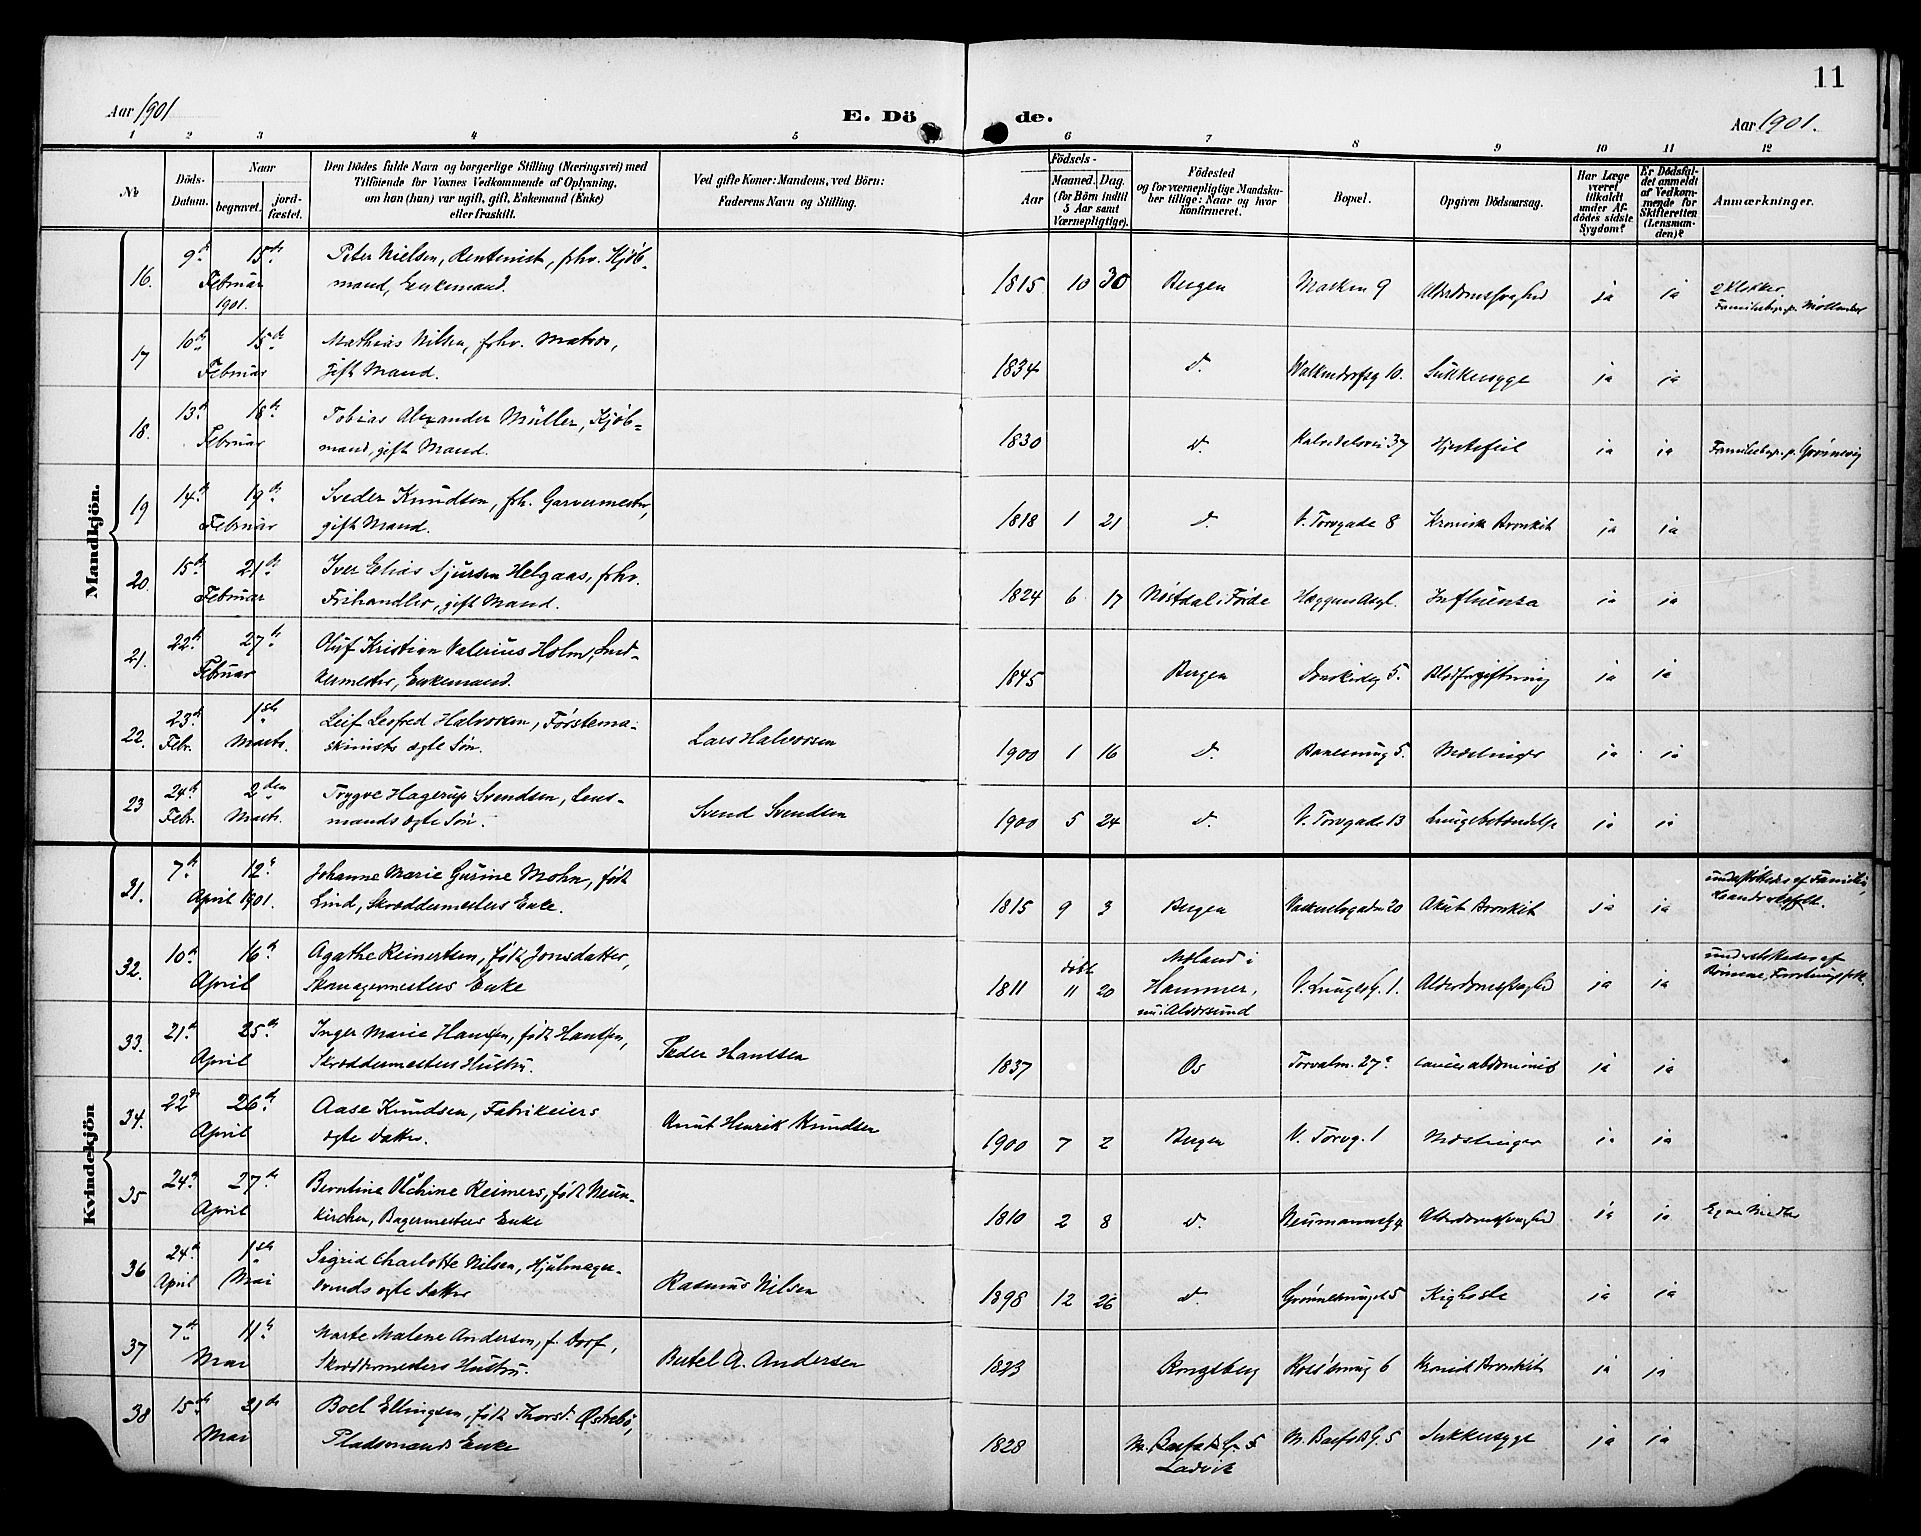 11
Aar 1901
E. Dö de.
Aar 1901.
1 2 3 4 5 6 7 8 9 10 11 12
No
Döds-Datum.
Naar
begravet.
jord-fæstet.
Den Dödes fulde Navn og borgerlige Stilling (Næringsvei) med
Tilföiende for Voxnes Vedkommende af Oplysning,
om han (hun) var ugift, gift, Enkemand (Enke)
eller fraskilt.
Ved gifte Koner: Mandens, ved Börn:
Faderens Navn og Stilling.
Födsels-
Aar
Maaned. Dag.
(for Börn indtil
5 Aar samt
Værnepligtige).
Födested
og for værnepligtige Mandska-
ber tillige: Naar og hvor
konfirmeret.
Bopæl.
Opgiven Dödsaarsag.
Har Læge
været
tilkaldt
under Af-
dödes sidste
Sygdom?
Er Dödsfal-
det anmeldt
af Vedkom-
mende for
Skifteretten
(Lensman-
den)?
Anmærkninger.
Mandkjön.
16. 9de 15de Februar 1901. Peter Nielsen, Rentenist, fhv. Kjöb-
mand, Enkemand. 1815 10 30 Bergen Marken 9 Alderdomssvaghed ja ja 2 Klokker
17 10de 15de Februar Mathias Nilsen, fhv. Matros,
gift Mand. 1834 d. Walkendorfsg 10. Sukkersyge ja ja
18. 13de 18de Februar Tobias Alexander Müller, Kjöb-
mand, gift Mand. 1830 d. Kalvedalsvei 37 Hjertefeil ja ja
19 14de 19de Februar Sveder Knudsen, fh. Garvermester,
gift Mand. 1818 1 21 d. V. Torvgade 8 Kronisk Bronkit ja ja
20. 15de 21de Februar Iver Elias Sjursen Helgaas, fhv.
Frihandler, gift Mand. 1824 6 17 Nöstdal i Förde Influenza ja ja
21. 22de 27de Februar Oluf Kristian Valerius Holm, Sned-
kermester, Enkemand. 1845 Bergen Blodforgiftning ja ja
22. 23de Febr. 1ste Marts. Leif Leofred Halvorsen, Förstema-
skinists ægte Sön. Lars Halvorsen 1900 1 16 d. Meslinger ja ja
23 24de Febr. 2den Marts. Trygve Hagerup Svendsen, Lens-
mands ægte Sön. Svend Svendsen 1900 5 24 d. V. Torvgade 13 Lungebetændelse ja ja
Kvindekjön
31. 7de 12te April 1901. Johanne Marie Gurine Mohn, födt
Lind, Skræddermesters Enke. 1815 9 3 Bergen Akut Bronkit ja ja
32. 10de 16de April Agathe Reinertsen, födt Jonsdatter,
Skomagermesters Enke 1811 döbt 11 20 Möland i
Hammer,
nu i Alversund V. Lungesg. 1. Alderdomssvaghed ja ja
33. 21de 25de April Inger Marie Hanssen, födt Hanssen,
Skræddermesters Hustru. Peder Hanssen 1837 Os Torvalm. 27c cancer abdominis ja ja
34. 22de 26de April Aase Knudsen, Fabrikeiers
ægte Datter. Knut Henrik Knudsen 1900 7 2 Bergen V. Torvg. 1 Meslinger ja ja
35 24de 27de April Berntine Olchine Reimers, födt Neun-
kircher, Bagermesters Enke 1810 2 8 d. Alderdomssvaghed ja ja Egne Midler
36 24de April 1ste Mai Sigrid Charlotte Nilsen, Hjulmager-
svends ægte Datter Rasmus Nilsen 1898 12 26 d. Kighoste ja ja
37 7de 11te Mai Marte Malene Andersen, f. Dorf,
Skræddermesters Hustru. Bertel A. Andersen 1823 Kongsberg 6 Kronisk Bronkit ja ja
38 15de 21de Mai Boel Ellingsen, födt Thorsd. Östrebö,
Pladsmands Enke 1828 Ladvik Sukkersyge ja ja